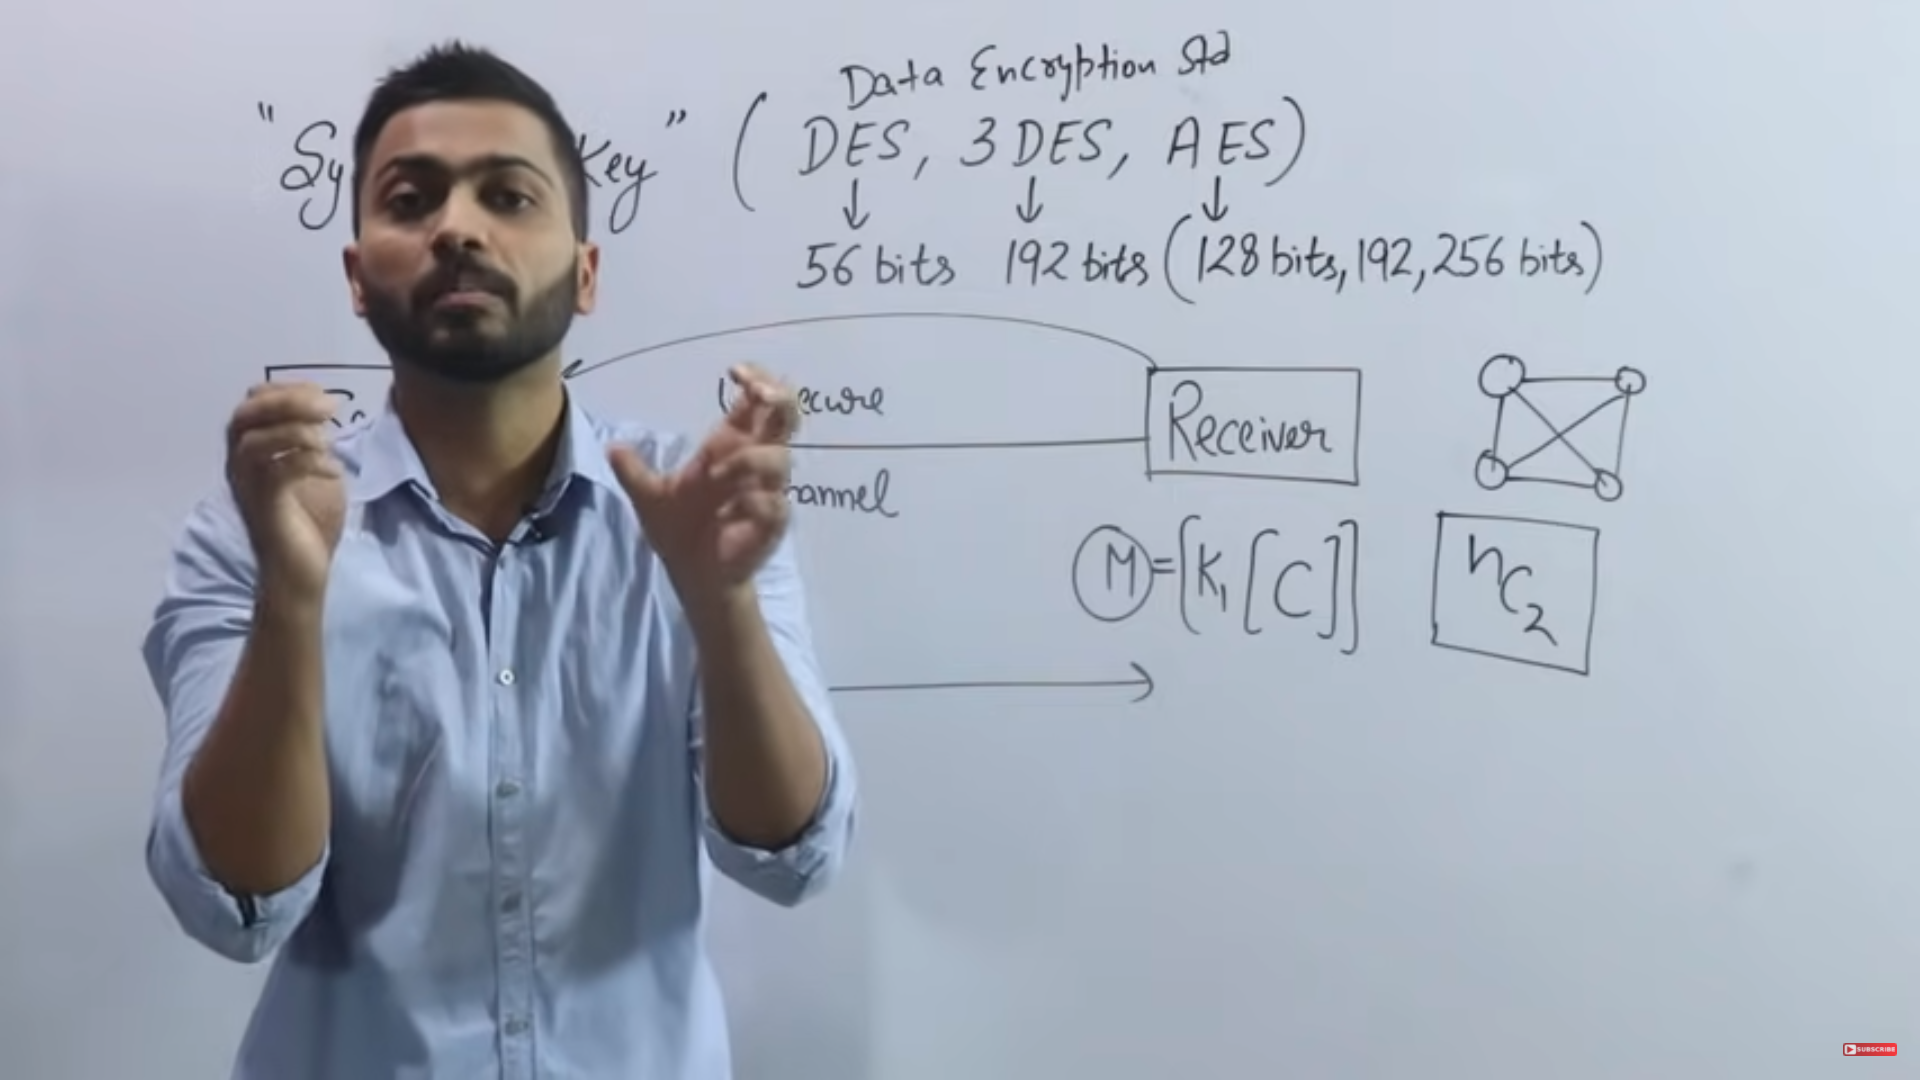 Data Encryption Std
" Key " ( DES, 3 DES, AES)
↓ ↓ ↓
56 bits 192 bits (128 bits, 192, 256 bits)
Receiver
M = [K₁ [C]]
nC₂
SUBSCRIBE